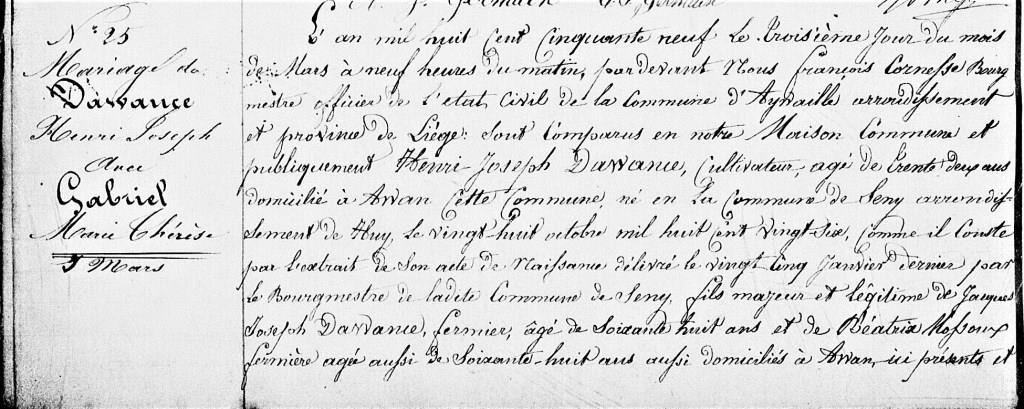 N° 25
Mariage de
Dawance
Henri Joseph
avec
Gabriel
Marie Thérèse
3 Mars
L'an mil huit cent cinquante neuf le troisième jour du mois
de Mars à neuf heures du matin, pardevant Nous françois Cornesse Bourg
mestre officier de l'etat Civil de la Commune d'Aywaille arrondissement
et province de Liége: sont comparus en notre Maison Commune et
publiquement Henri-Joseph Dawance, Cultivateur, agé de trente-deux ans
domicilié à Awan Cette Commune, né en la Commune de Seny arrondis-
sement de Huy, le vingt-huit octobre mil huit cent vingt-six, comme il Conste
par l'extrait de son acte de Naissance délivré le vingt cinq Janvier dernier par
le Bourgmestre de ladite Commune de Seny, fils majeur et légitime de Jacques
Joseph Dawance, fermier, âgé de Soixante huit ans et de Béatrix Mossoux
fermière agée aussi de Soixante-huit ans aussi domiciliés à Awan, ici présents et